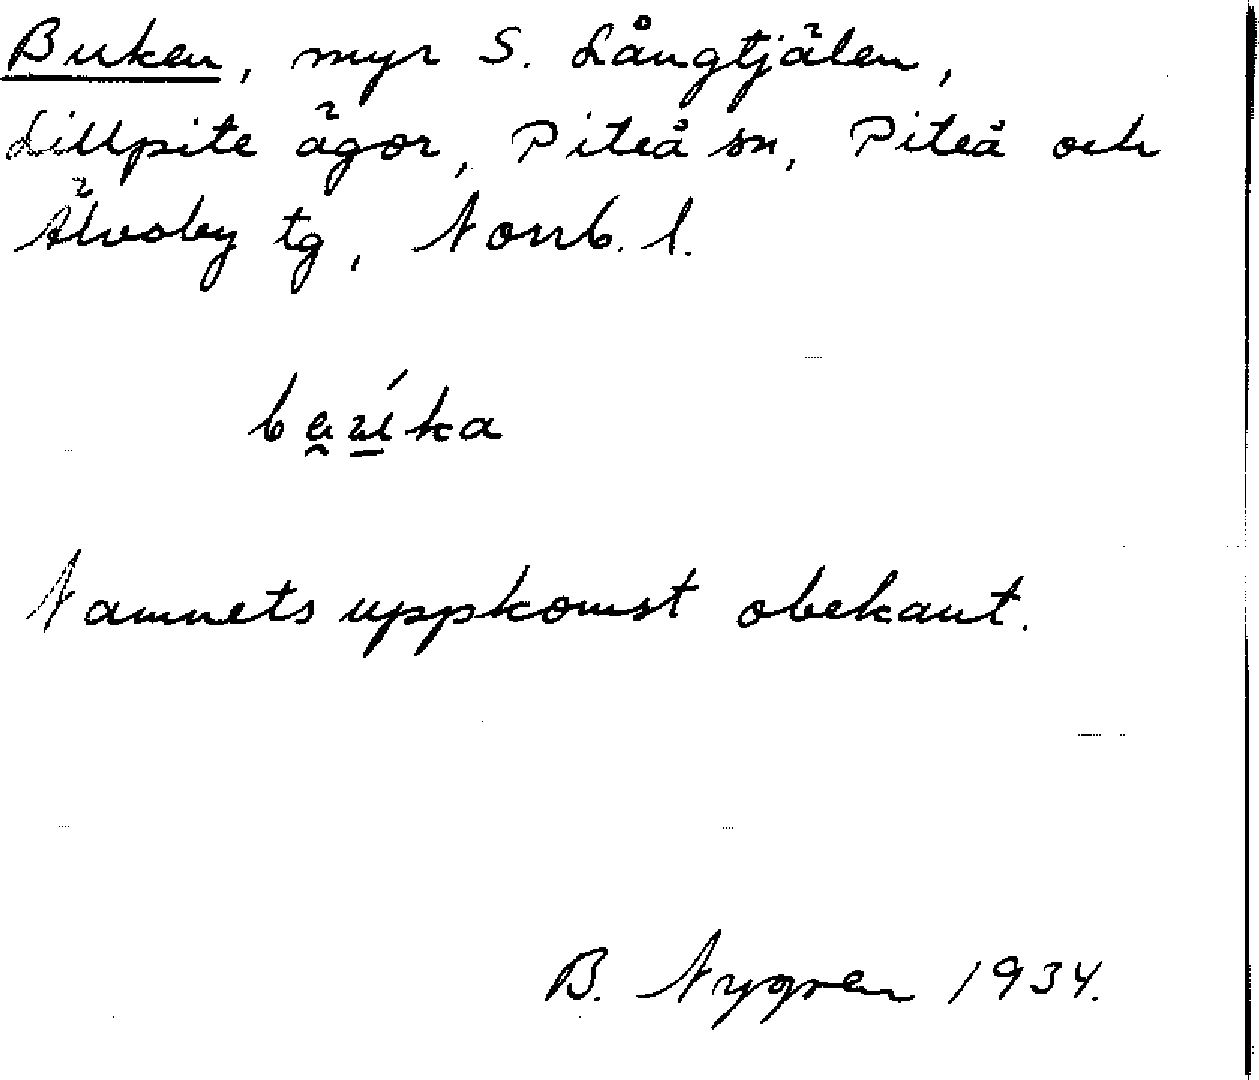 Buken, myr S. Långtjälen,
Lillpite ägor, Piteå sn, Piteå och
Älvsby tg, Norrb. l.
Namnets uppkomst obekant.
B. Nygren 1934.